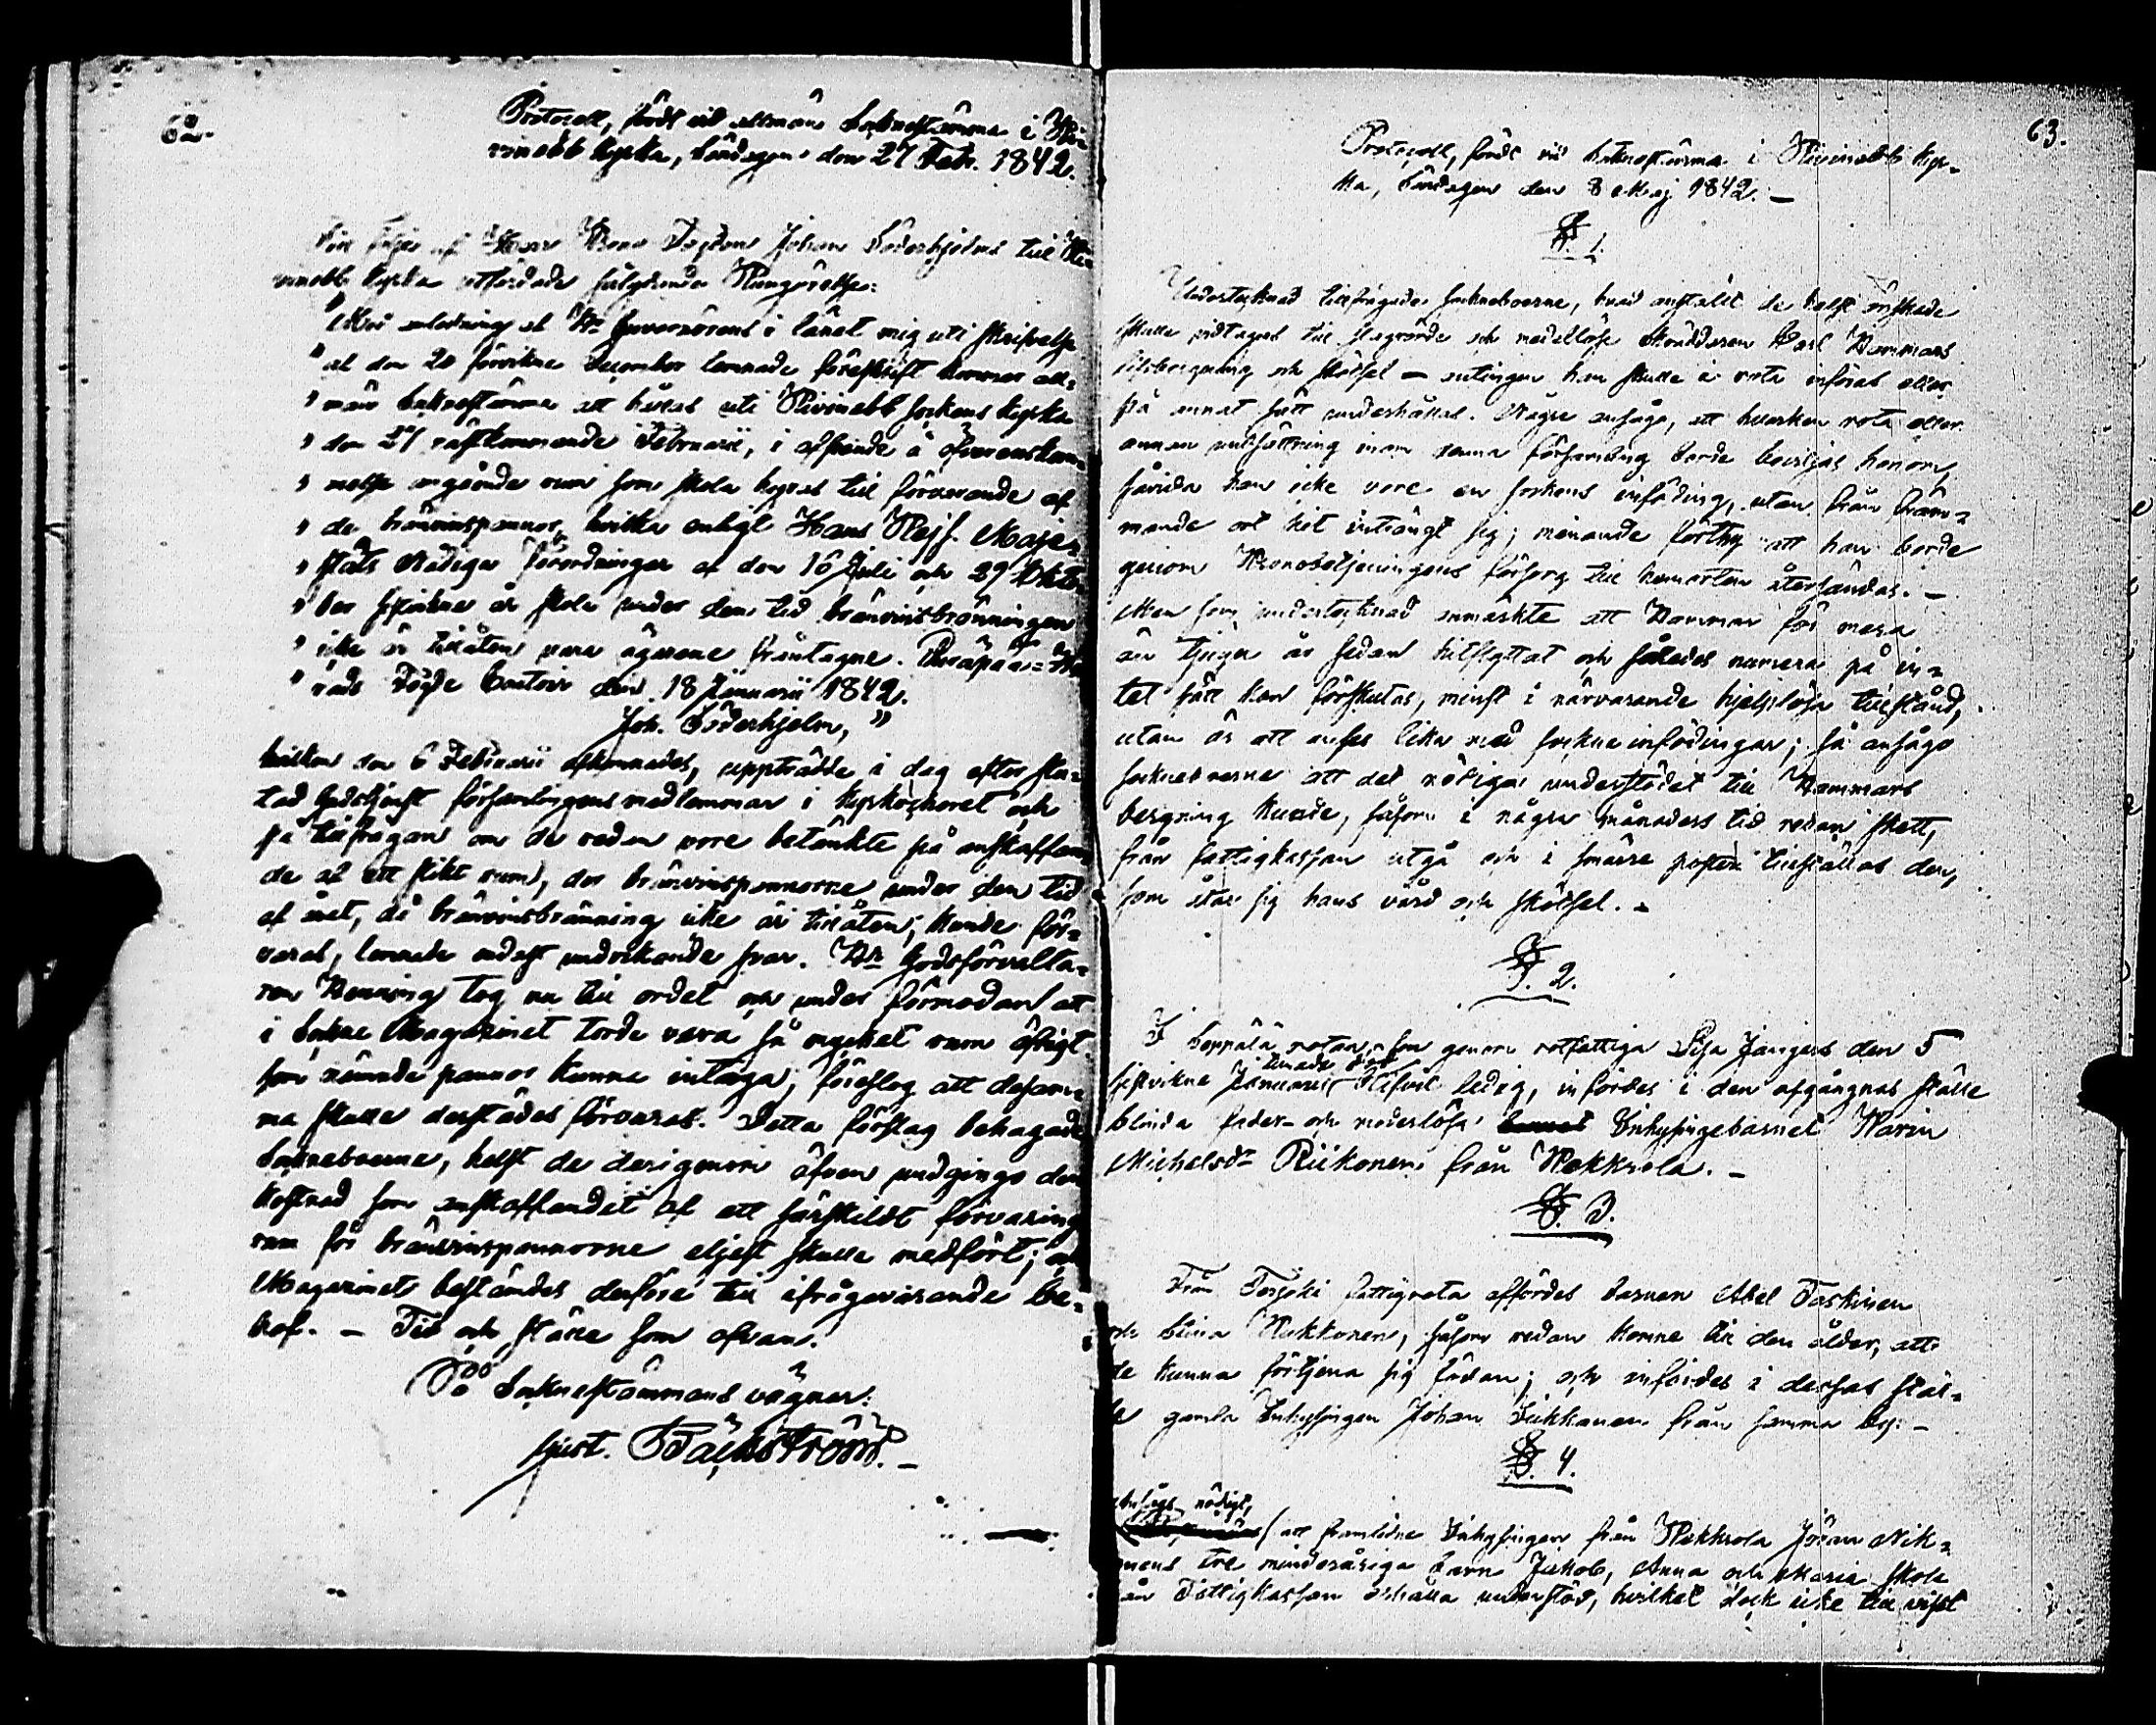 62.
Protocoll, fördt vid allmän Sockneftämma i Ki-
vinebb kyrka, Söndagen den 27 Febr. 1842.
Till följe af Herr Krono Fogden Johan Söderhjelms till Ki-
vinebb kyrka utfärdade följande Kungörelse:
"Med anledning af Hr Guvernörens i länet mig uti skrifvelse
"af den 20 förvikne December lemnade föreskrift kommer all-
"män Sockneftämma att hållas uti Kivinebb sockens kyrka
"den 27 nästkommande Februarii, i afseende å öfverenskom-
"melse angående rum som skola hyras till förvarande af
"de bränvinspannor, hvilka enligt Hans Kejs. Maje-
"stäts Nådiga Förordningar af den 16 Juli och 29 Okto-
"ber sistvikne år skola under den tid bränvinsbränningen
"icke är tillåten vara ägarene fråntagne. Äuräpää Hä-
"rads Fögde Contoir den 18 Januarii 1842.
Joh. Söderhjelm,"
hvilken den 6 Februarii aflemnades, uppträdde i dag efter slu-
tad Gudstjenst församlingens medlemmar i kyrkochoret och
på tillfrågan om de redan vore betänkte på anskaffan-
de af ett slikt rum, der bränvinspannorne under den tid
af året, då bränvinsbränning icke är tillåten, kunde för-
varas, lemnade endast undvikande svar. Hr Godsförvalta-
ren Henning tog nu till ordet och under förmodan att
i Sockne Magazinet torde vara så mycket rum öfrigt
som nämnde pannor kunna intaga, föreslog att desam-
ma skulle derstädes förvaras. Detta förslag behagade
Socknebоerne, helst de derigenom äfven undgingo den
kostnad som anskaffandet af ett särskildt förvarings
rum för bränvinspannorne eljest skulle medfört; och
Magazinet bestämdes derföre till ifrågavarande be-
hof. – Tid och ställe som ofvan.
På Sockneftämmans vägnar:
Just. Bäckström. –
63.
Protocoll, fördt vid Sockneftämma i Kivinebb kyr-
ka, Söndagen den 8 Maj 1842. –
§. 1.
Undertecknad tillfrågade socknebоerne, hvad anstallt de helst önskade
skulle vidtagas till slagrörde och medellöse Skräddaren Carl Hammars
lifsbergning och skötsel – antingen han skulle i rota införas eller
på annat sätt underhållas. Någre ansågo, att hvarken rota eller
annan undsättning inom denna församling borde beviljas honom,
såvida han icke vore en sockens infödning, utan från främ-
mande ort hit inträngt sig; menande förthy att han borde
genom Kronobetjeningens försorg till hemorten återsändas. –
Men som undertecknad anmärkte att Hammar för mera
än tjugu år sedan hitflyttat och således numera på in-
tet sätt kan förskjutas, minst i närvarande hjelplösa tillstånd,
utan är att anses lika med sockne infödingar; så ansågo
socknebоerne att det nödiga understödet till Hammars
bergning kunde, såsom i några månaders tid redan skett,
från fattigkassan utgå och i smärre poster tillställas den,
som åtar sig hans vård och skötsel. –
§. 2.
I Seppälä rotan, som genom rotfattiga Lisa Jäägers den 5
sistvikne Januarii timade död blifvit ledig, infördes i den afgångnas ställe
blinda fader- och moderlösa Inhysingebarnet Karin
Michelsdr Riikonen från Kekkrola. –
§. 3.
Från Terijoki fattigrota affördes barnen Abel Taskinen
och Stina Kukkonen, såsom redan komne till den ålder, att
de kunna förtjena sig födan; och infördes i dessas stäl-
le gamla Inhysingen Johan Sukkanen från samma by. –
§. 4.
Ansågs nödigt,
att framlidne Inhysingen från Kekkrola Jöran Nik-
nens tre minderåriga barn Jakob, Anna och Maria skola
från Fattigkassan erhålla understöd, hvilket dock icke till visst